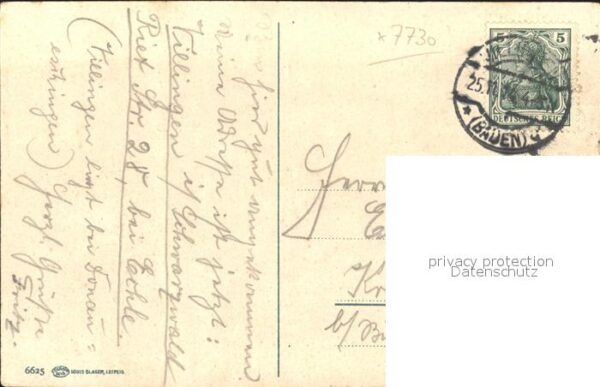 Bin hier gut angekommen
Meine Adresse ist jetzt:
Villingen i/ Schwarzwald
Riet Str. 28, bei Echle.
(Villingen liegt bei Donau=
eschingen) Herzl. Grüße
Fritz.
x7730
5 5
DEUTSCHES REICH
25.
* (BADEN)
Herr
Kr
b/ Bi
privacy protection
Datenschutz
6625 LOUIS GLASER, LEIPZIG.